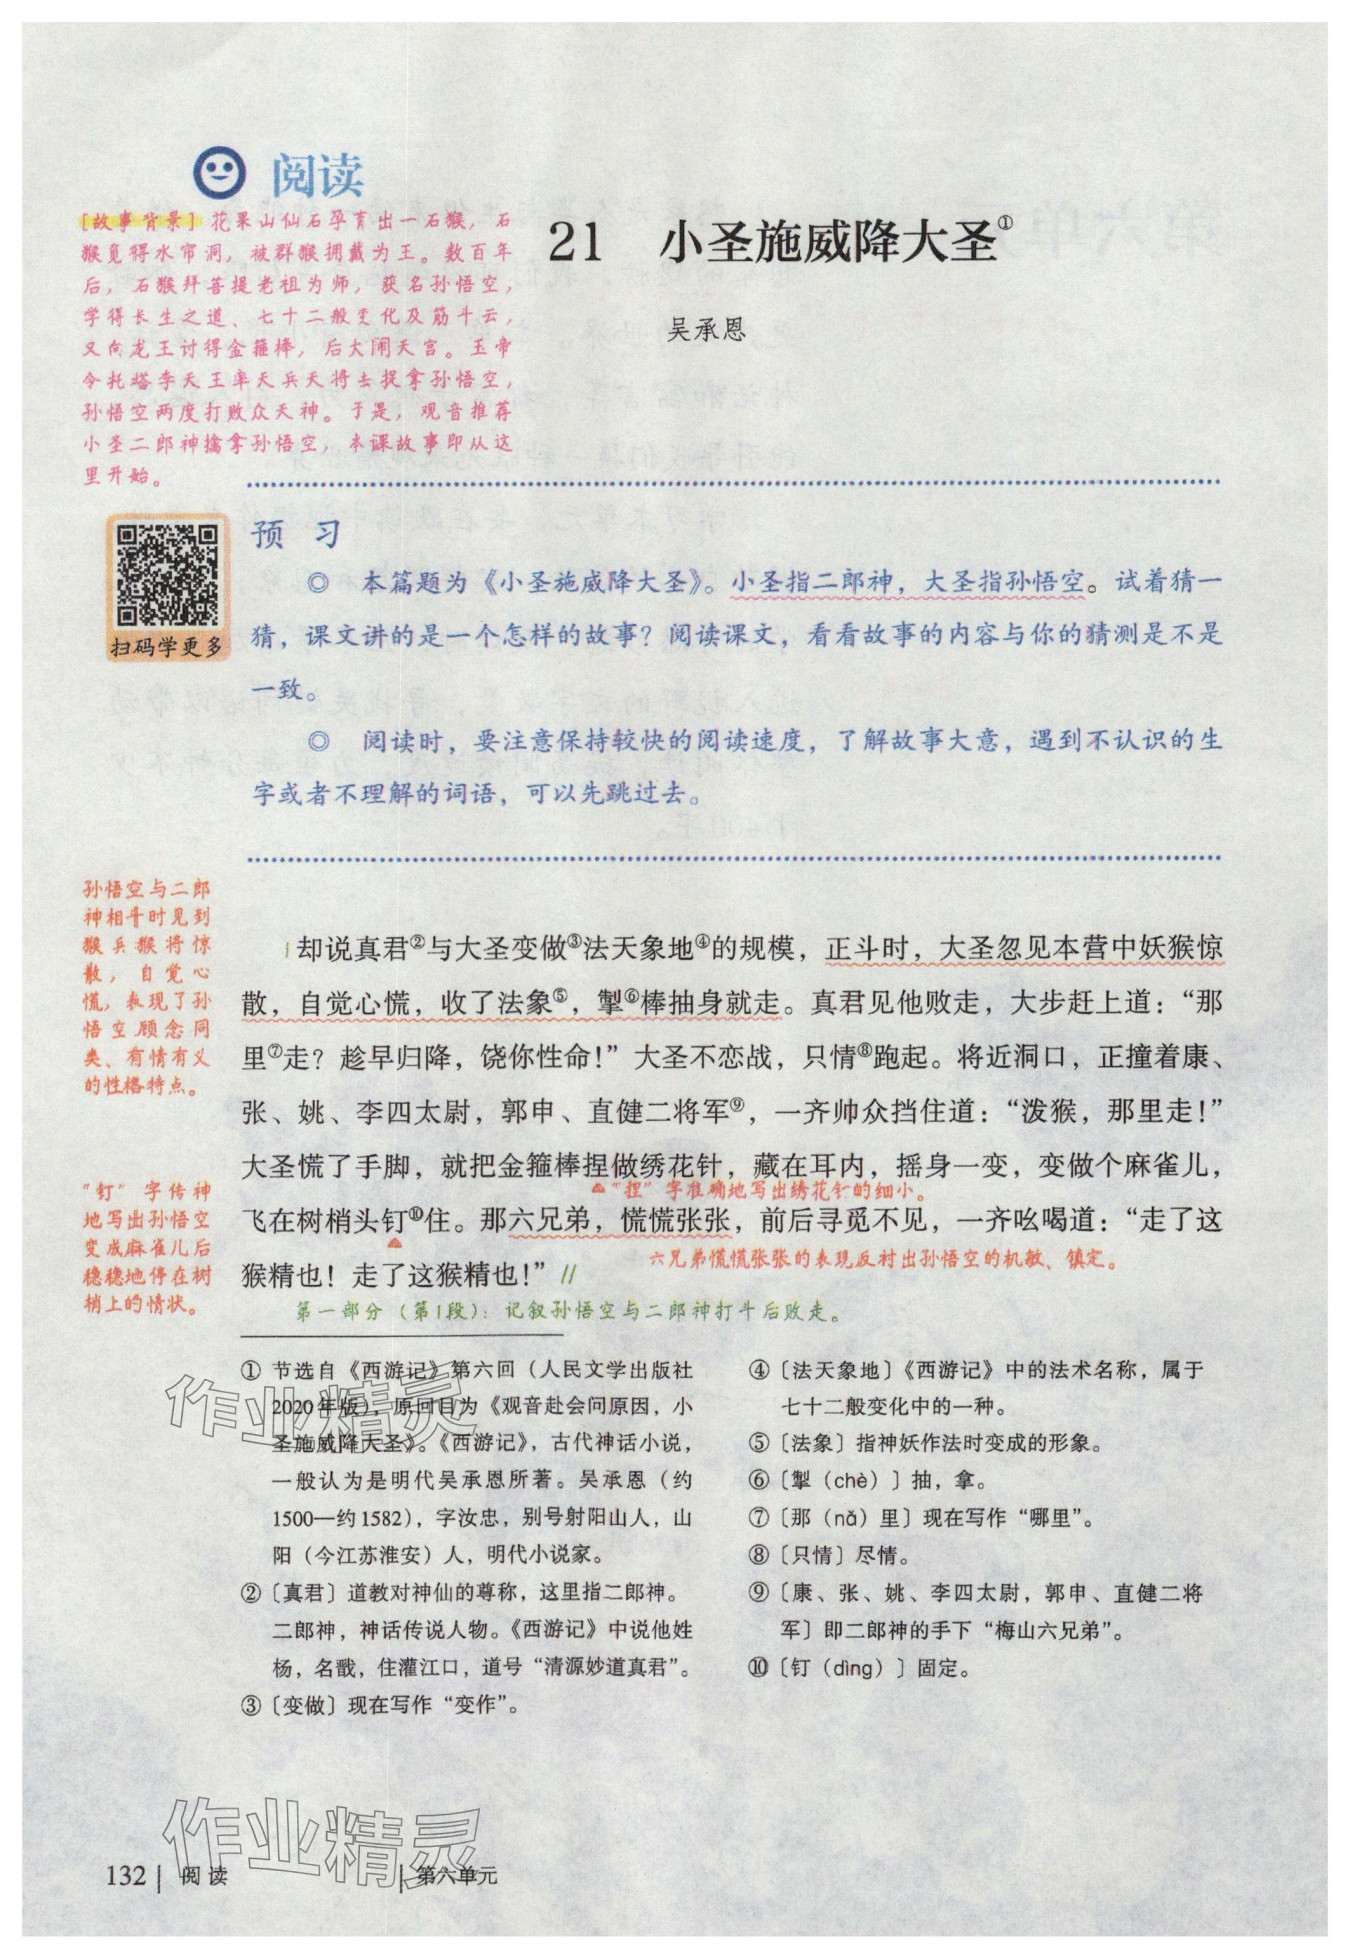 阅读
21 小圣施威降大圣①
吴承恩
[故事背景] 花果山仙石孕育出一石猴，石
猴觅得水帘洞，被群猴拥戴为王。数百年
后，石猴拜菩提老祖为师，获名孙悟空，
学得长生之道、七十二般变化及筋斗云，
又向龙王讨得金箍棒，后大闹天宫。玉帝
令托塔李天王率天兵天将去捉拿孙悟空，
孙悟空两度打败众天神。于是，观音推荐
小圣二郎神擒拿孙悟空，本课故事即从这
里开始。
扫码学更多
预 习
◎ 本篇题为《小圣施威降大圣》。小圣指二郎神，大圣指孙悟空。试着猜一
猜，课文讲的是一个怎样的故事？阅读课文，看看故事的内容与你的猜测是不是
一致。
◎ 阅读时，要注意保持较快的阅读速度，了解故事大意，遇到不认识的生
字或者不理解的词语，可以先跳过去。
孙悟空与二郎
神相斗时见到
猴兵猴将惊
散，自觉心
慌，表现了孙
悟空顾念同
类、有情有义
的性格特点。
却说真君②与大圣变做③法天象地④的规模，正斗时，大圣忽见本营中妖猴惊
散，自觉心慌，收了法象⑤，掣⑥棒抽身就走。真君见他败走，大步赶上道：“那
里⑦走？趁早归降，饶你性命！”大圣不恋战，只情⑧跑起。将近洞口，正撞着康、
张、姚、李四太尉，郭申、直健二将军⑨，一齐帅众挡住道：“泼猴，那里走！”
大圣慌了手脚，就把金箍棒捏做绣花针，藏在耳内，摇身一变，变做个麻雀儿，
“捏”字准确地写出绣花针的细小。
飞在树梢头钉⑩住。那六兄弟，慌慌张张，前后寻觅不见，一齐吆喝道：“走了这
六兄弟慌慌张张的表现反衬出孙悟空的机敏、镇定。
猴精也！走了这猴精也！”//
第一部分（第1段）：记叙孙悟空与二郎神打斗后败走。
“钉”字传神
地写出孙悟空
变成麻雀儿后
稳稳地停在树
梢上的情状。
① 节选自《西游记》第六回（人民文学出版社
2020年版），原回目为《观音赴会问原因，小
圣施威降大圣》。《西游记》，古代神话小说，
一般认为是明代吴承恩所著。吴承恩（约
1500—约1582），字汝忠，别号射阳山人，山
阳（今江苏淮安）人，明代小说家。
② 〔真君〕道教对神仙的尊称，这里指二郎神。
二郎神，神话传说人物。《西游记》中说他姓
杨，名戬，住灌江口，道号“清源妙道真君”。
③ 〔变做〕现在写作“变作”。
④ 〔法天象地〕《西游记》中的法术名称，属于
七十二般变化中的一种。
⑤ 〔法象〕指神妖作法时变成的形象。
⑥ 〔掣（chè）〕抽，拿。
⑦ 〔那（nǎ）里〕现在写作“哪里”。
⑧ 〔只情〕尽情。
⑨ 〔康、张、姚、李四太尉，郭申、直健二将
军〕即二郎神的手下“梅山六兄弟”。
⑩ 〔钉（dìng）〕固定。
作业精灵
作业精灵
132 阅读 第六单元